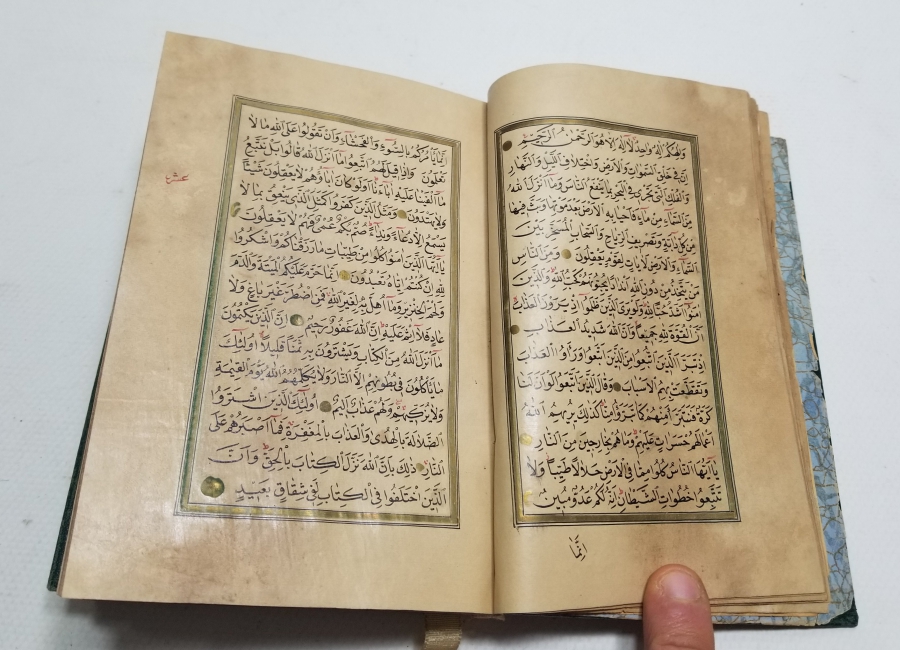 وَاِلٰهُكُمْ اِلٰهٌ وَاحِدٌ لَا اِلٰهَ اِلَّا هُوَ الرَّحْمٰنُ الرَّحِيمُ
اِنَّ فِي خَلْقِ السَّمٰوَاتِ وَالْاَرْضِ وَاخْتِلَافِ اللَّيْلِ وَالنَّهَارِ
وَالْفُلْكِ الَّتِي تَجْرِي فِي الْبَحْرِ بِمَا يَنْفَعُ النَّاسَ وَمَا اَنْزَلَ اللّٰهُ
مِنَ السَّمَاءِ مِنْ مَاءٍ فَاَحْيَا بِهِ الْاَرْضَ بَعْدَ مَوْتِهَا وَبَثَّ فِيهَا
مِنْ كُلِّ دَابَّةٍ وَتَصْرِيفِ الرِّيَاحِ وَالسَّحَابِ الْمُسَخَّرِ بَيْنَ
السَّمَاءِ وَالْاَرْضِ لَاٰيَاتٍ لِقَوْمٍ يَعْقِلُونَ وَمِنَ النَّاسِ
مَنْ يَتَّخِذُ مِنْ دُونِ اللّٰهِ اَنْدَادًا يُحِبُّونَهُمْ كَحُبِّ اللّٰهِ وَالَّذِينَ
اٰمَنُوا اَشَدُّ حُبًّا لِلّٰهِ وَلَوْ يَرَى الَّذِينَ ظَلَمُوا اِذْ يَرَوْنَ الْعَذَابَ
اَنَّ الْقُوَّةَ لِلّٰهِ جَمِيعًا وَاَنَّ اللّٰهَ شَدِيدُ الْعَذَابِ
اِذْ تَبَرَّاَ الَّذِينَ اتُّبِعُوا مِنَ الَّذِينَ اتَّبَعُوا وَرَاَوُا الْعَذَابَ
وَتَقَطَّعَتْ بِهِمُ الْاَسْبَابُ وَقَالَ الَّذِينَ اتَّبَعُوا لَوْ اَنَّ لَنَا
كَرَّةً فَنَتَبَرَّاَ مِنْهُمْ كَمَا تَبَرَّؤُا مِنَّا كَذٰلِكَ يُرِيهِمُ اللّٰهُ
اَعْمَالَهُمْ حَسَرَاتٍ عَلَيْهِمْ وَمَا هُمْ بِخَارِجِينَ مِنَ النَّارِ
يَا اَيُّهَا النَّاسُ كُلُوا مِمَّا فِي الْاَرْضِ حَلَالًا طَيِّبًا وَلَا
تَتَّبِعُوا خُطُوَاتِ الشَّيْطَانِ اِنَّهُ لَكُمْ عَدُوٌّ مُبِينٌ
اِنَّمَا
اِنَّمَا يَاْمُرُكُمْ بِالسُّوءِ وَالْفَحْشَاءِ وَاَنْ تَقُولُوا عَلَى اللّٰهِ مَا لَا
تَعْلَمُونَ وَاِذَا قِيلَ لَهُمُ اتَّبِعُوا مَا اَنْزَلَ اللّٰهُ قَالُوا بَلْ نَتَّبِعُ
مَا اَلْفَيْنَا عَلَيْهِ اٰبَاءَنَا اَوَلَوْ كَانَ اٰبَاؤُهُمْ لَا يَعْقِلُونَ شَيْئًا
وَلَا يَهْتَدُونَ وَمَثَلُ الَّذِينَ كَفَرُوا كَمَثَلِ الَّذِي يَنْعِقُ بِمَا لَا
يَسْمَعُ اِلَّا دُعَاءً وَنِدَاءً صُمٌّ بُكْمٌ عُمْيٌ فَهُمْ لَا يَعْقِلُونَ
يَا اَيُّهَا الَّذِينَ اٰمَنُوا كُلُوا مِنْ طَيِّبَاتِ مَا رَزَقْنَاكُمْ وَاشْكُرُوا
لِلّٰهِ اِنْ كُنْتُمْ اِيَّاهُ تَعْبُدُونَ اِنَّمَا حَرَّمَ عَلَيْكُمُ الْمَيْتَةَ وَالدَّمَ
وَلَحْمَ الْخِنْزِيرِ وَمَا اُهِلَّ بِهِ لِغَيْرِ اللّٰهِ فَمَنِ اضْطُرَّ غَيْرَ بَاغٍ وَلَا
عَادٍ فَلَا اِثْمَ عَلَيْهِ اِنَّ اللّٰهَ غَفُورٌ رَحِيمٌ اِنَّ الَّذِينَ يَكْتُمُونَ
مَا اَنْزَلَ اللّٰهُ مِنَ الْكِتَابِ وَيَشْتَرُونَ بِهِ ثَمَنًا قَلِيلًا اُولٰئِكَ
مَا يَاْكُلُونَ فِي بُطُونِهِمْ اِلَّا النَّارَ وَلَا يُكَلِّمُهُمُ اللّٰهُ يَوْمَ الْقِيٰمَةِ
وَلَا يُزَكِّيهِمْ وَلَهُمْ عَذَابٌ اَلِيمٌ اُولٰئِكَ الَّذِينَ اشْتَرَوُا
الضَّلَالَةَ بِالْهُدٰى وَالْعَذَابَ بِالْمَغْفِرَةِ فَمَا اَصْبَرَهُمْ عَلَى
النَّارِ ذٰلِكَ بِاَنَّ اللّٰهَ نَزَّلَ الْكِتَابَ بِالْحَقِّ وَاِنَّ
الَّذِينَ اخْتَلَفُوا فِي الْكِتَابِ لَفِي شِقَاقٍ بَعِيدٍ
عشر